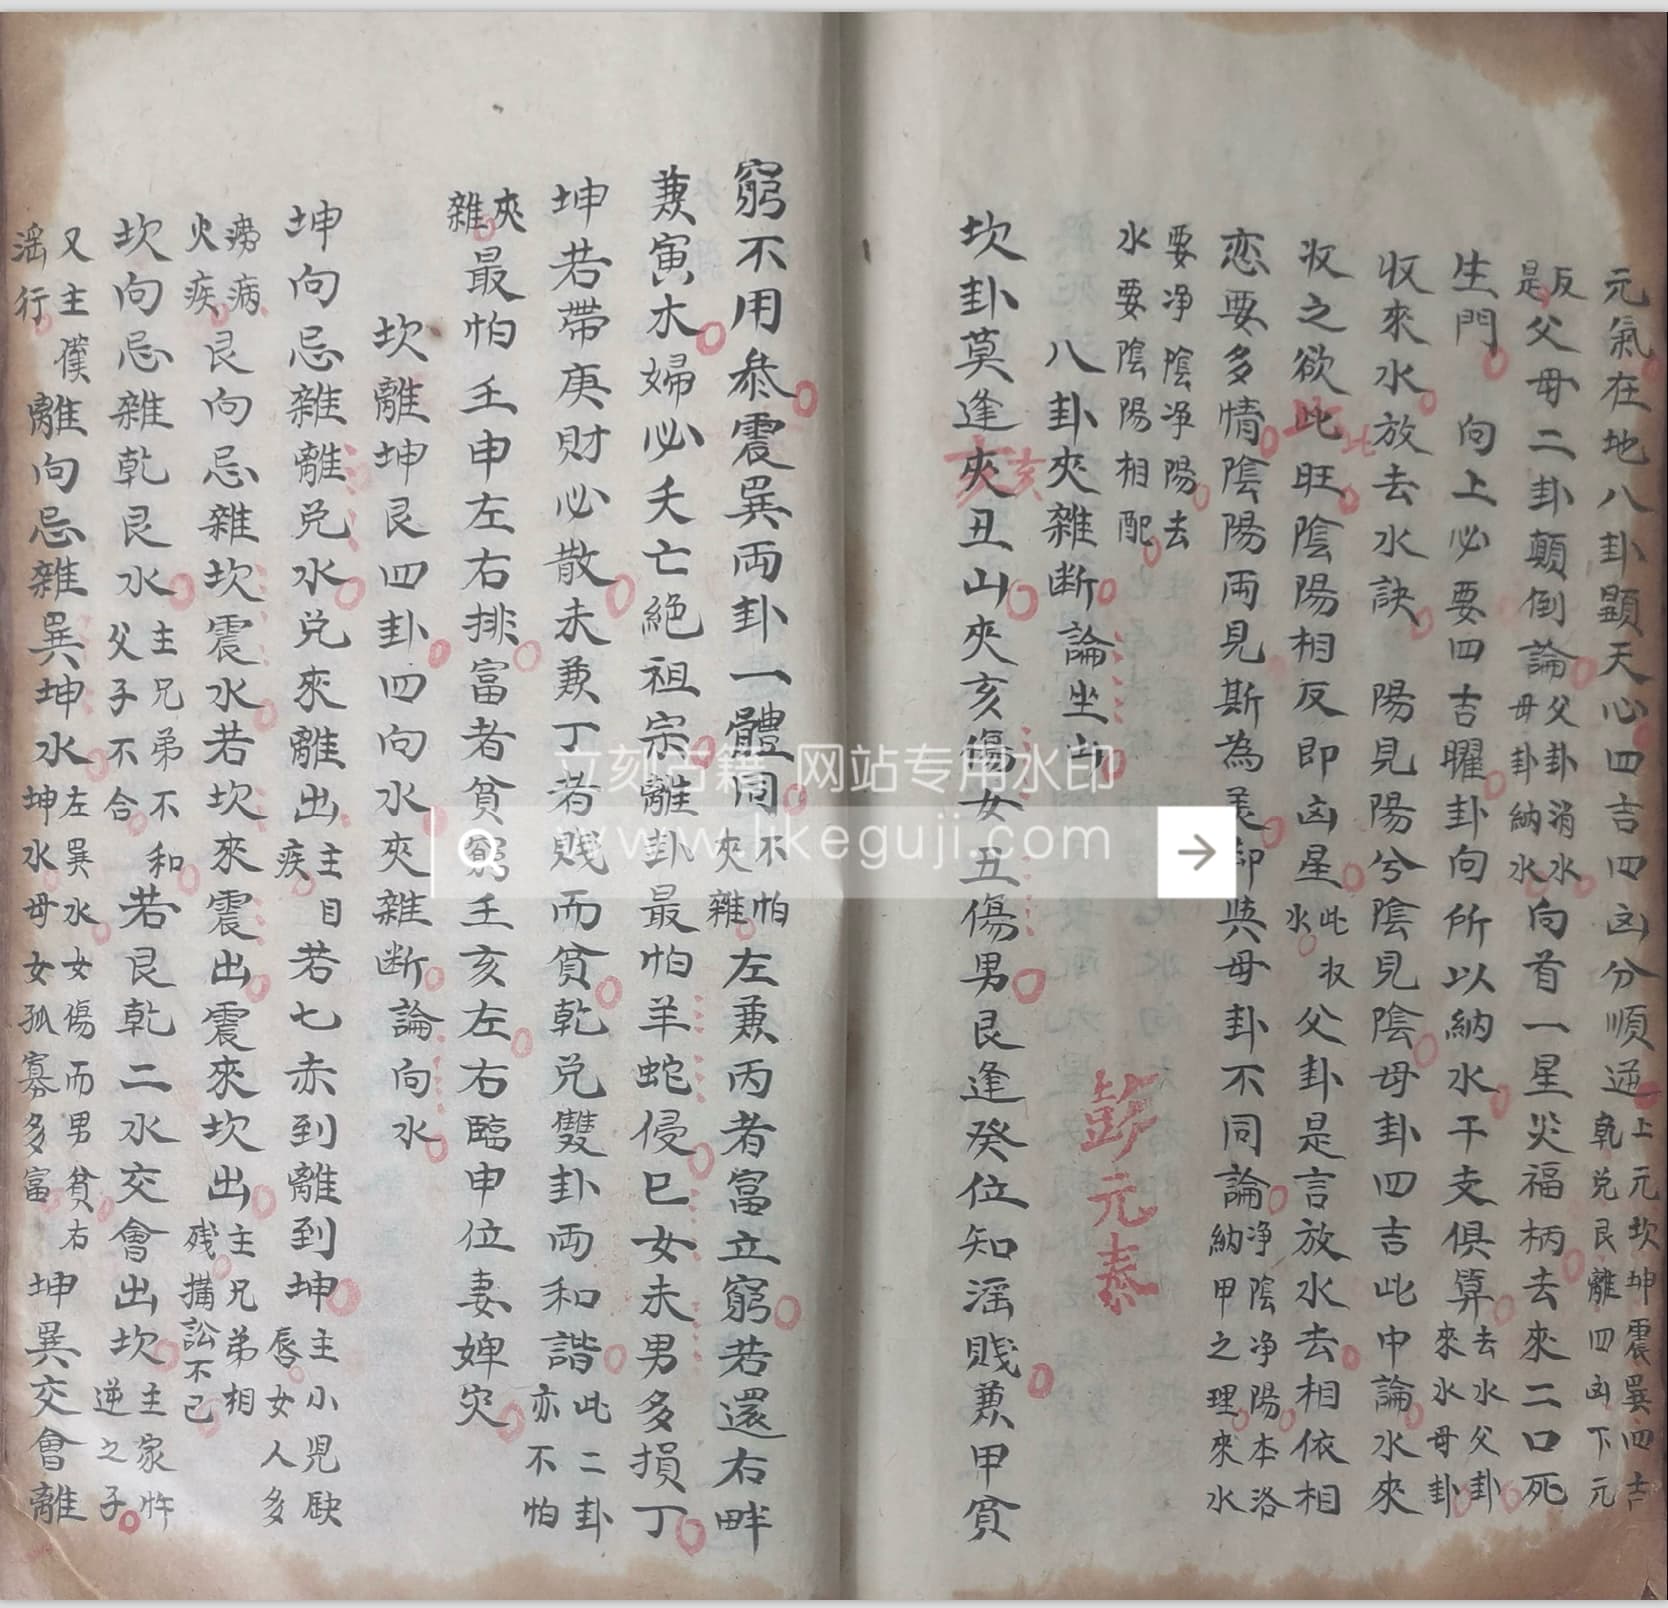 元氣在地八卦顯天心四吉四凶分順逆上元坎坤震巽四吉乾兑艮離四凶下元
反是父母二卦顛倒論父卦消水母卦納水向首一星災福柄去來二口死
生門 向上必要四吉曜卦向所以納水干支俱算去水父卦來水母卦
收來水放去水訣 陽見陽兮陰見陰母卦四吉此中論水來
收之欲此旺陰陽相反即凶星此水收父卦是言放水去相依相
恋要多情陰陽両見斯為美卸與母卦不同論净陰净陽本洛納甲之理來水
要净陰净陽去水要陰陽相配
八卦夾雜断論坐山
彭元泰
坎卦莫逢夾丑山夾亥傷女丑傷男艮逢癸位知滛賤兼甲貧
亥亥
此
窮不用叅震巽両卦一體同不怕夾雜左兼丙者富立窮若還右畔
兼寅木婦必夭亡絕祖宗離卦最怕羊蛇侵巳女未男多損丁
坤若帶庚財必散未兼丁者賤而貧乾兑雙卦両和諧此二卦亦不怕
夾雜最怕壬申左右排富者貧窮壬亥左右臨申位妻婢灾
坎離坤艮四卦四向水夾雜断論向水
坤向忌雜離兑水兑來離出主目疾若七赤到離到坤主小児缺唇女人多
痨病火疾艮向忌雜坎震水若坎來震出震來坎出主兄弟相残搆訟不已
坎向忌雜乾艮水主兄弟不和父子不合若艮乾二水交會出坎主家忤逆之子
又主僕滛行離向忌雜巽坤水左巽水女傷而男貧右坤水母女孤寡多富坤巽交會離
立刻古籍 网站专用水印
www.lkeguji.com